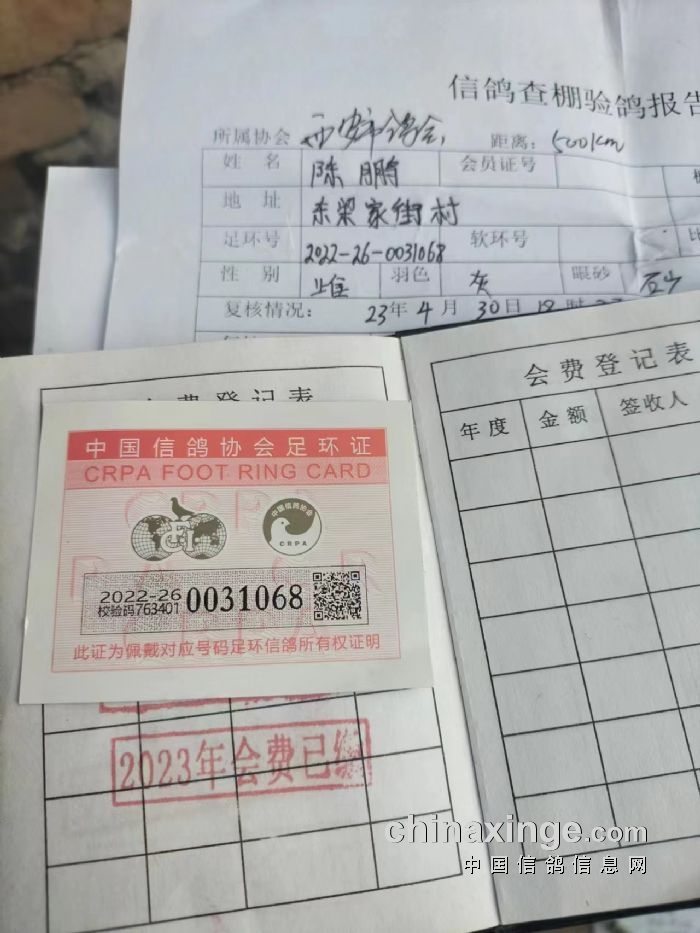 信鸽查棚验鸽报告
所属协会 西安市信鸽会 距离: 500km
姓 名 陈鹏 会员证号
地 址 东梁家街村
足环号 2022-26-0031068 软环号
性 别 雌 羽色 灰 眼砂 石
复核情况: 23年4月30日18时
会费登记表
会费登记表
年度 金额 签收人
中国信鸽协会足环证
CRPA FOOT RING CARD
中国信鸽协会
CRPA
2022-26
校验码763401 0031068
此证为佩戴对应号码足环信鸽所有权证明
2023年会费已缴
chinaxinge.com
中国信鸽信息网